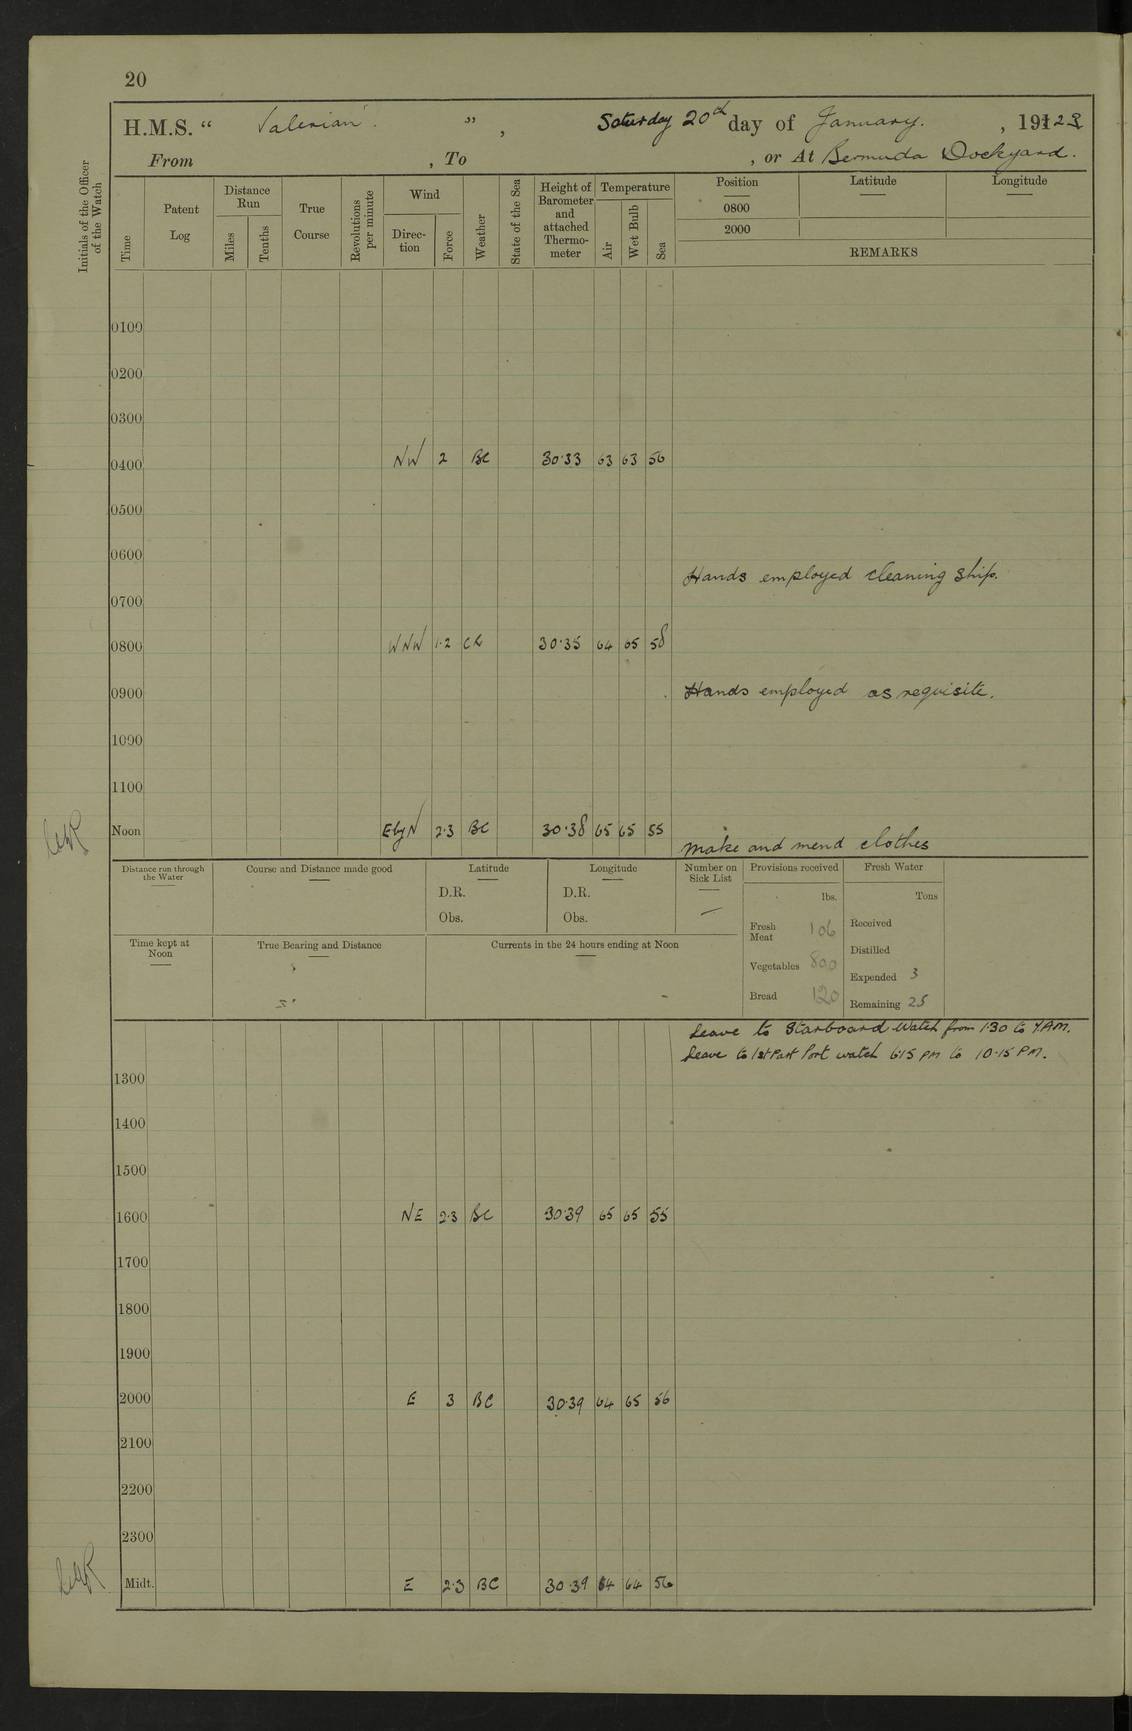 20
H.M.S. “ Valerian ” , Saturday 20th day of January. , 1923
From , To , or At Bermuda Dockyard.
Initials of the Officer of the Watch
Time
Patent Log
Distance Run
Miles
Tenths
True Course
Revolutions per minute
Wind
Direction
Force
Weather
State of the Sea
Height of Barometer and attached Thermometer
Temperature
Air
Wet Bulb
Sea
Position Latitude Longitude
0800
2000
REMARKS
0100
0200
0300
0400 NW 2 BC 30·33 63 63 56
0500
0600
Hands employed cleaning ship.
0700
0800 WNW 1·2 30·35 64 65 58
0900 Hands employed as requisite.
1000
1100
Noon EbyN 2·3 BC 30·38 65 65 55
Make and mend clothes
Distance run through the Water
Course and Distance made good
Latitude
D.R.
Obs.
Longitude
D.R.
Obs.
Number on Sick List
—
Provisions received
lbs.
Fresh Meat 106
Vegetables 800
Bread 120
Fresh Water
Tons
Received
Distilled
Expended 3
Remaining 25
Time kept at Noon
True Bearing and Distance
Currents in the 24 hours ending at Noon
Leave to Starboard Watch from 1·30 to 7.AM.
Leave to 1st Part Port watch 6·15 PM to 10·15 PM.
1300
1400
1500
1600 NE 2·3 BC 30·39 65 65 55
1700
1800
1900
2000 E 3 BC 30·39 64 65 56
2100
2200
2300
Midt. E 2·3 BC 30·39 64 64 56